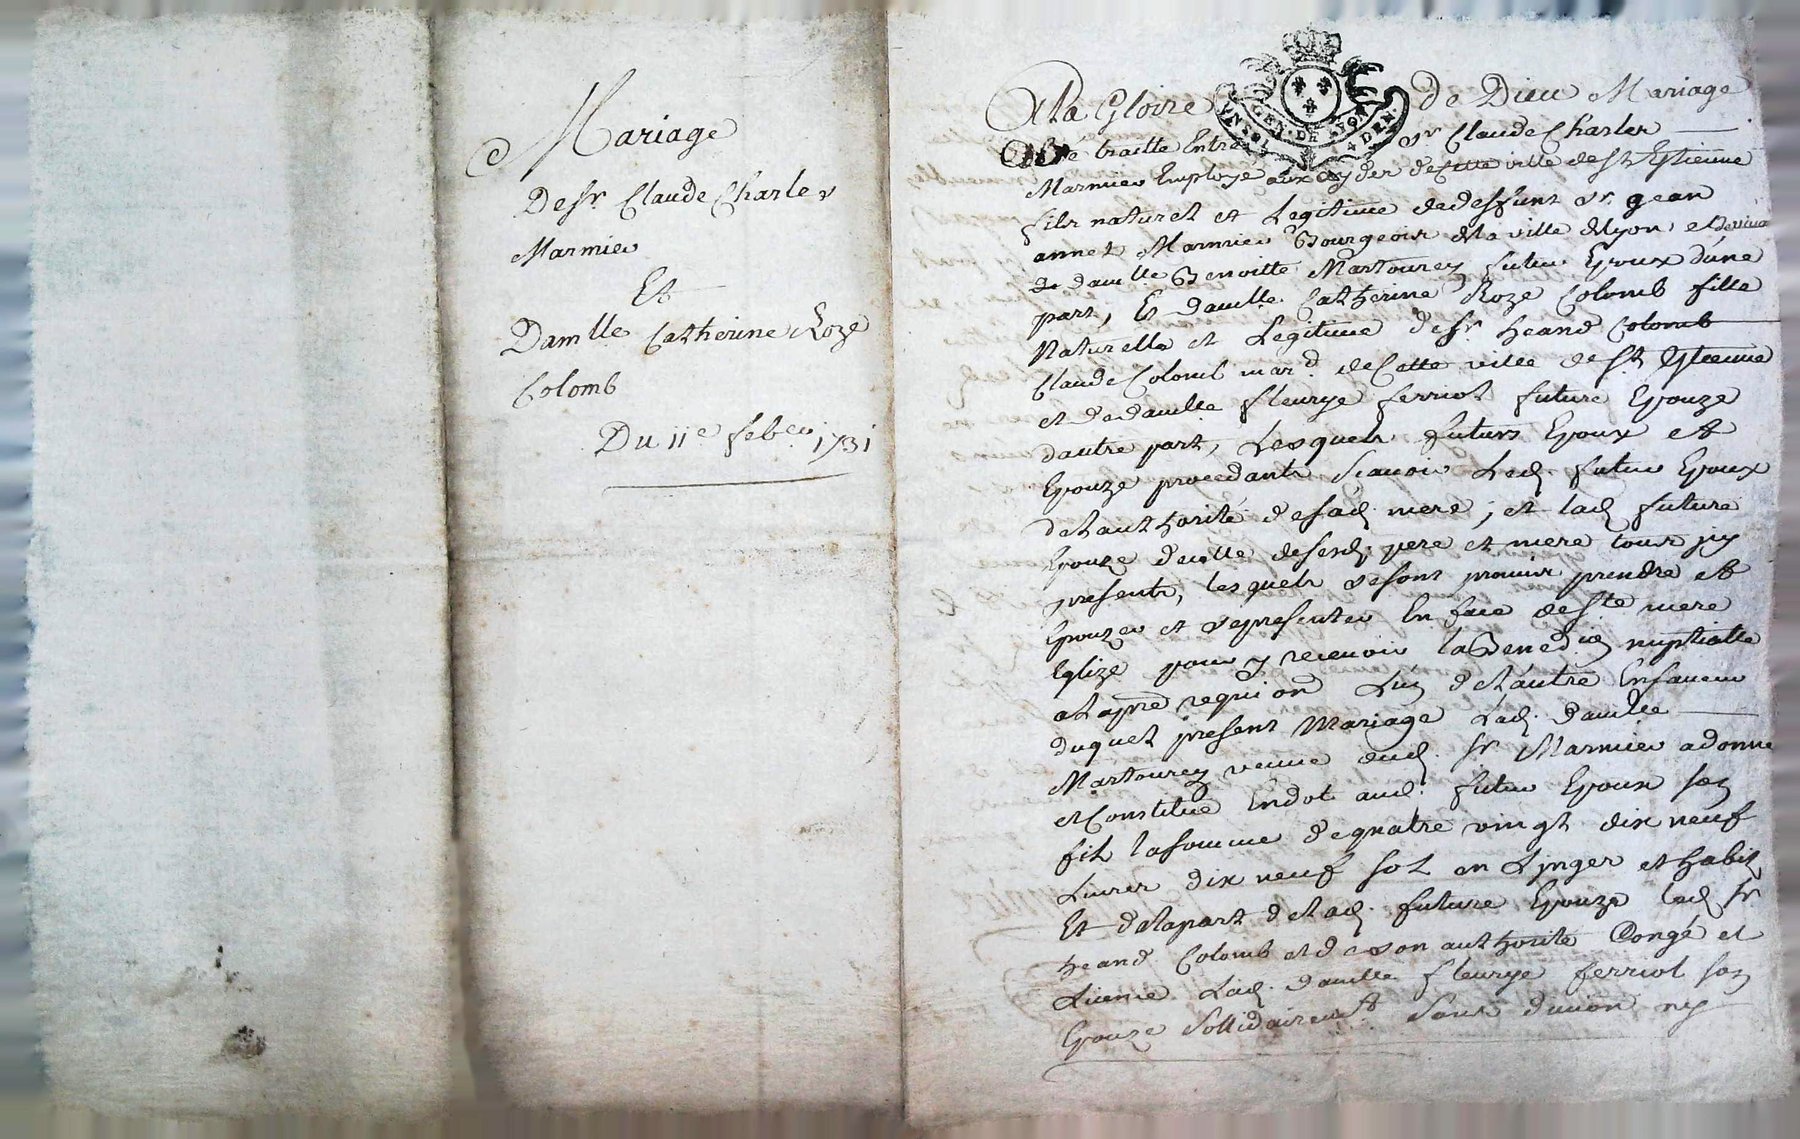 Mariage
De sr Claude Charles
Marmier
Et
Damlle Catherine Roze
Colomb
Du 11e feber 1731
A la Gloire de Dieu Mariage
GEN. DE LYON
DEN.
traitte Entre sr Claude Charles
Marmier Employé aux aydes de Cette ville de St Estienne
fils naturel et Legitime de deffunt sr. Jean
annet Marmier Bourgeois de la ville de lyon, et
de damlle Benoitte Martourey futur Epoux d'une
part, Et damlle Catherine Roze Colomb fille
Naturelle et Legitime de sr heand Colomb
Claude Colomb mard. de Cette ville de St Estienne
et de damlle fleurye ferriol future Epouze
dautre part, Lesquels futurs Epoux et
Epouze procedants scauoir Led. futur Epoux
de l'authorité de sad. mere; et lad future
Epouze de celle de send. pere et mere tous jcy
presents, lesquels se sont promis prendre et
Epouzer et se presenter En face de Ste mere
Eglize pour y receuoir la Bened.on nuptialle
a la pre requi.on Lun de l'autre En faueur
duquel present Mariage Lad. damlle
Martourey veuue dud. sr Marmier a donné
et Constitué En dot aud. futur Epoux son
fils la somme de quatre vingt dix neuf
Liures dix neuf sol en Linges et habits
Et de la part de lad. future Epouze led sr
heand Colomb et de son authorité Congé et
Licence Lad. damlle fleurye ferriol son
Epouze sollidairemt sans diuion ny